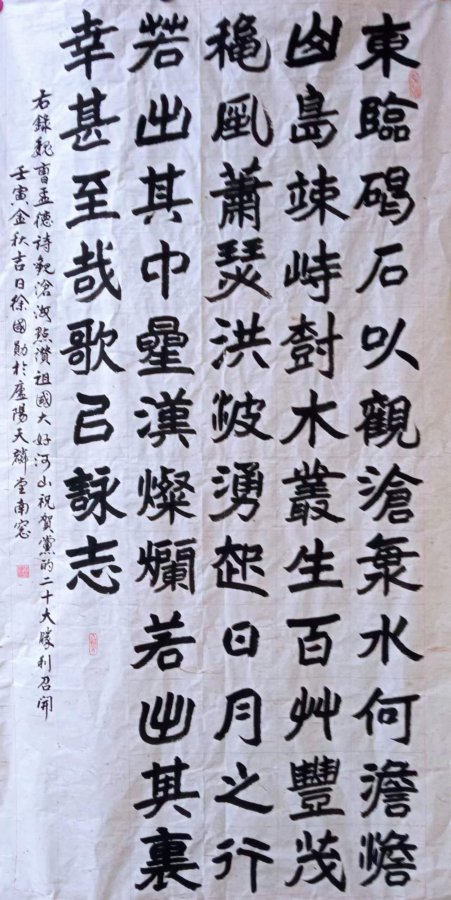 東臨碣石㕥觀滄海水何澹澹
山島竦峙樹木叢生百艸豐茂
穐風蕭瑟洪波湧起日月之行
若出其中曐漢燦爛若出其裏
幸甚至哉歌已詠志
右錄魏曹孟德詩觀滄海點讚祖國大好河山祝賀黨的二十大勝利召開
壬寅金秋吉日徐國勛於廬陽天麟堂南窗